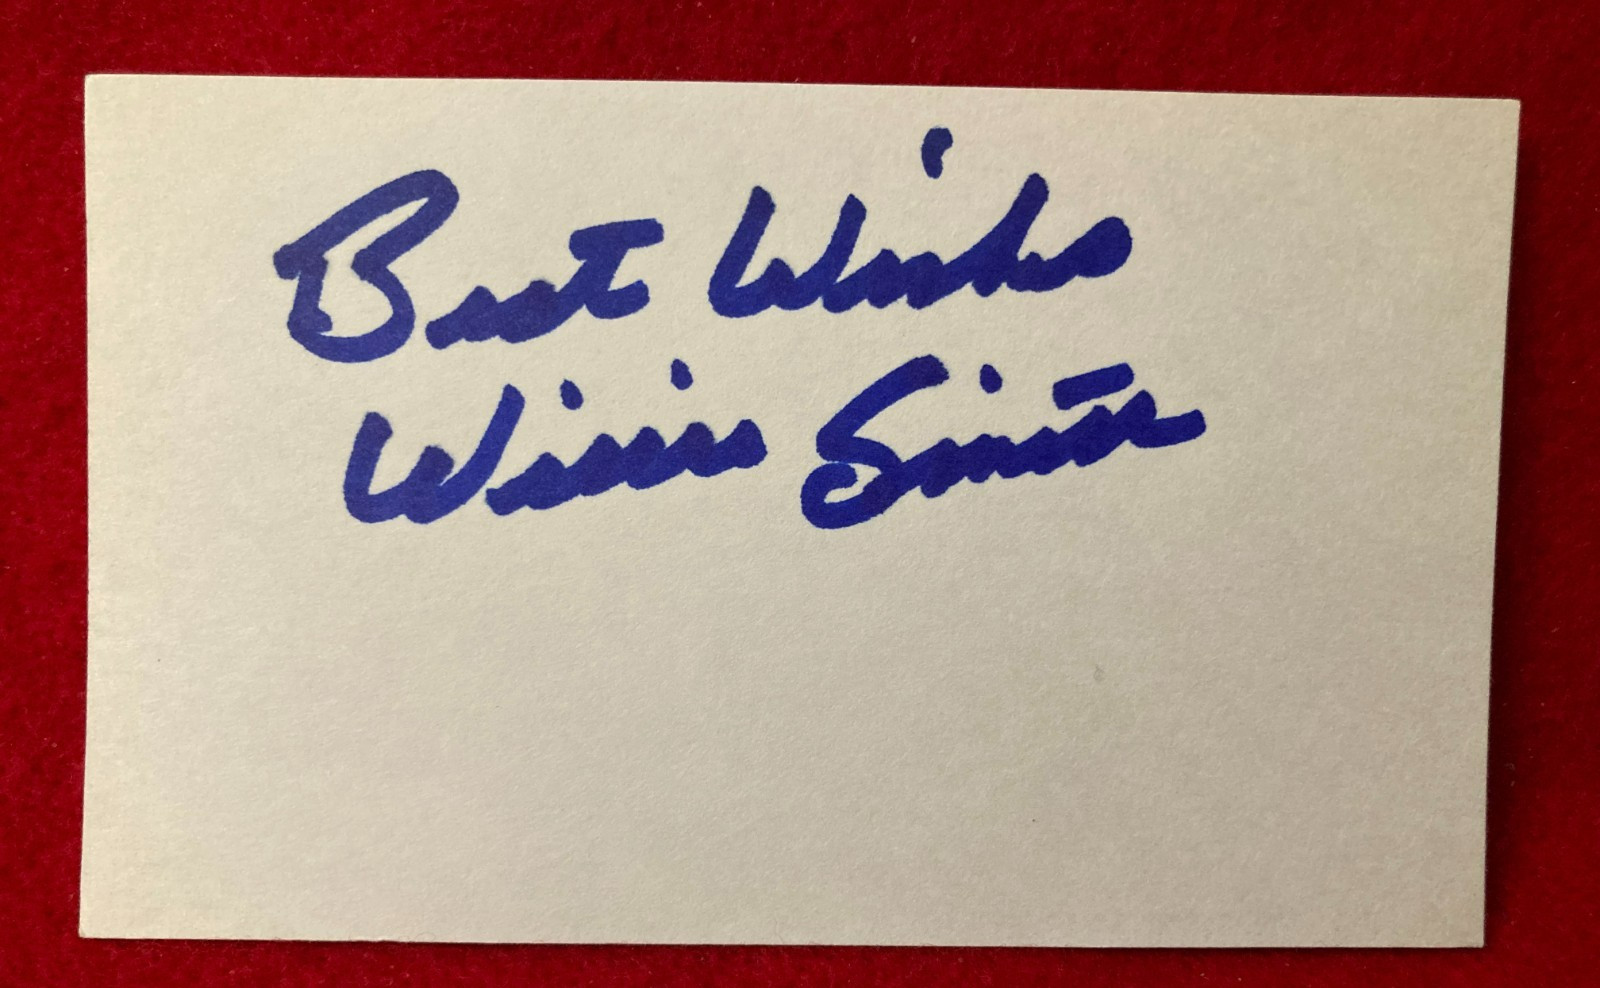 Best Wishes
Willie Smith